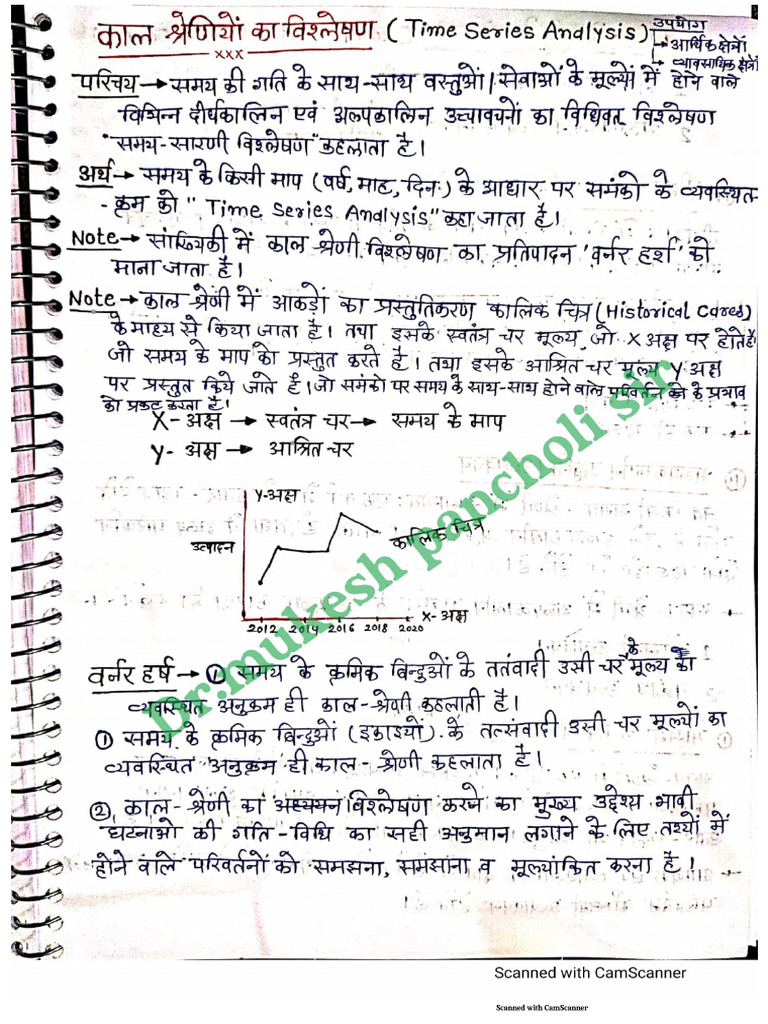 काल श्रेणियों का विश्लेषण ( Time Series Analysis )
उपयोग
→ आर्थिक क्षेत्रों
→ व्यावसायिक क्षेत्रों
xxx
परिचय → समय की गति के साथ-साथ वस्तुओं / सेवाओं के मूल्यों में होने वाले
विभिन्न दीर्घकालिन एवं अल्पकालिन उच्चावचनों का विधिवत् विश्लेषण
"समय-सारणी विश्लेषण" कहलाता है।
अर्थ → समय के किसी माप (वर्ष, माह, दिन) के आधार पर समंको के व्यवस्थित-
- क्रम को " Time Series Analysis" कहा जाता है।
Note → सांख्यिकी में काल श्रेणी विश्लेषण का प्रतिपादन 'वर्नर हर्श' को
माना जाता है।
Note → काल श्रेणी में आकडों का प्रस्तुतिकरण कालिक चित्र (Historical Cares)
के माध्य से किया जाता है। तथा इसके स्वतंत्र चर मूल्य जो X अक्ष पर होते है
जो समय के माप को प्रस्तुत करते है। तथा इसके आश्रित चर मूल्य Y अक्ष
पर प्रस्तुत किये जाते है। जो समंको पर समय के साथ-साथ होने वाले परिवर्तन के प्रभाव
को प्रकट करता है।
X- अक्ष → स्वतंत्र चर → समय के माप
Y- अक्ष → आश्रित चर
Y-अक्ष
उत्पादन
कालिक चित्र
X- अक्ष
2012 2014 2016 2018 2020
वर्नर हर्ष → ① समय के क्रमिक बिन्दुओं के ततंवादी उसी चर के मूल्य का
व्यवस्थित अनुक्रम ही काल-श्रेणी कहलाती है।
① समय के क्रमिक बिन्दुओं (इकाइयों) के तत्संवादी उसी चर मूल्यों का
व्यवस्थित अनुक्रम ही काल- श्रेणी कहलाता है।
② काल-श्रेणी का अध्ययन विश्लेषण करने का मुख्य उद्देश्य भावी
घटनाओ की गति-विधि का सही अनुमान लगाने के लिए तथ्यों में
होने वाले परिवर्तनों को समझना, समझाना व मूल्यांकित करना है।
Dr.mukesh pancholi sir
Scanned with CamScanner
Scanned with CamScanner